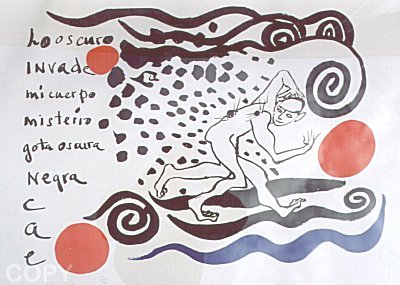 Lo oscuro
INVADE
mi cuerpo
misterio
gota oscura
Negra
C
a
e
COPY